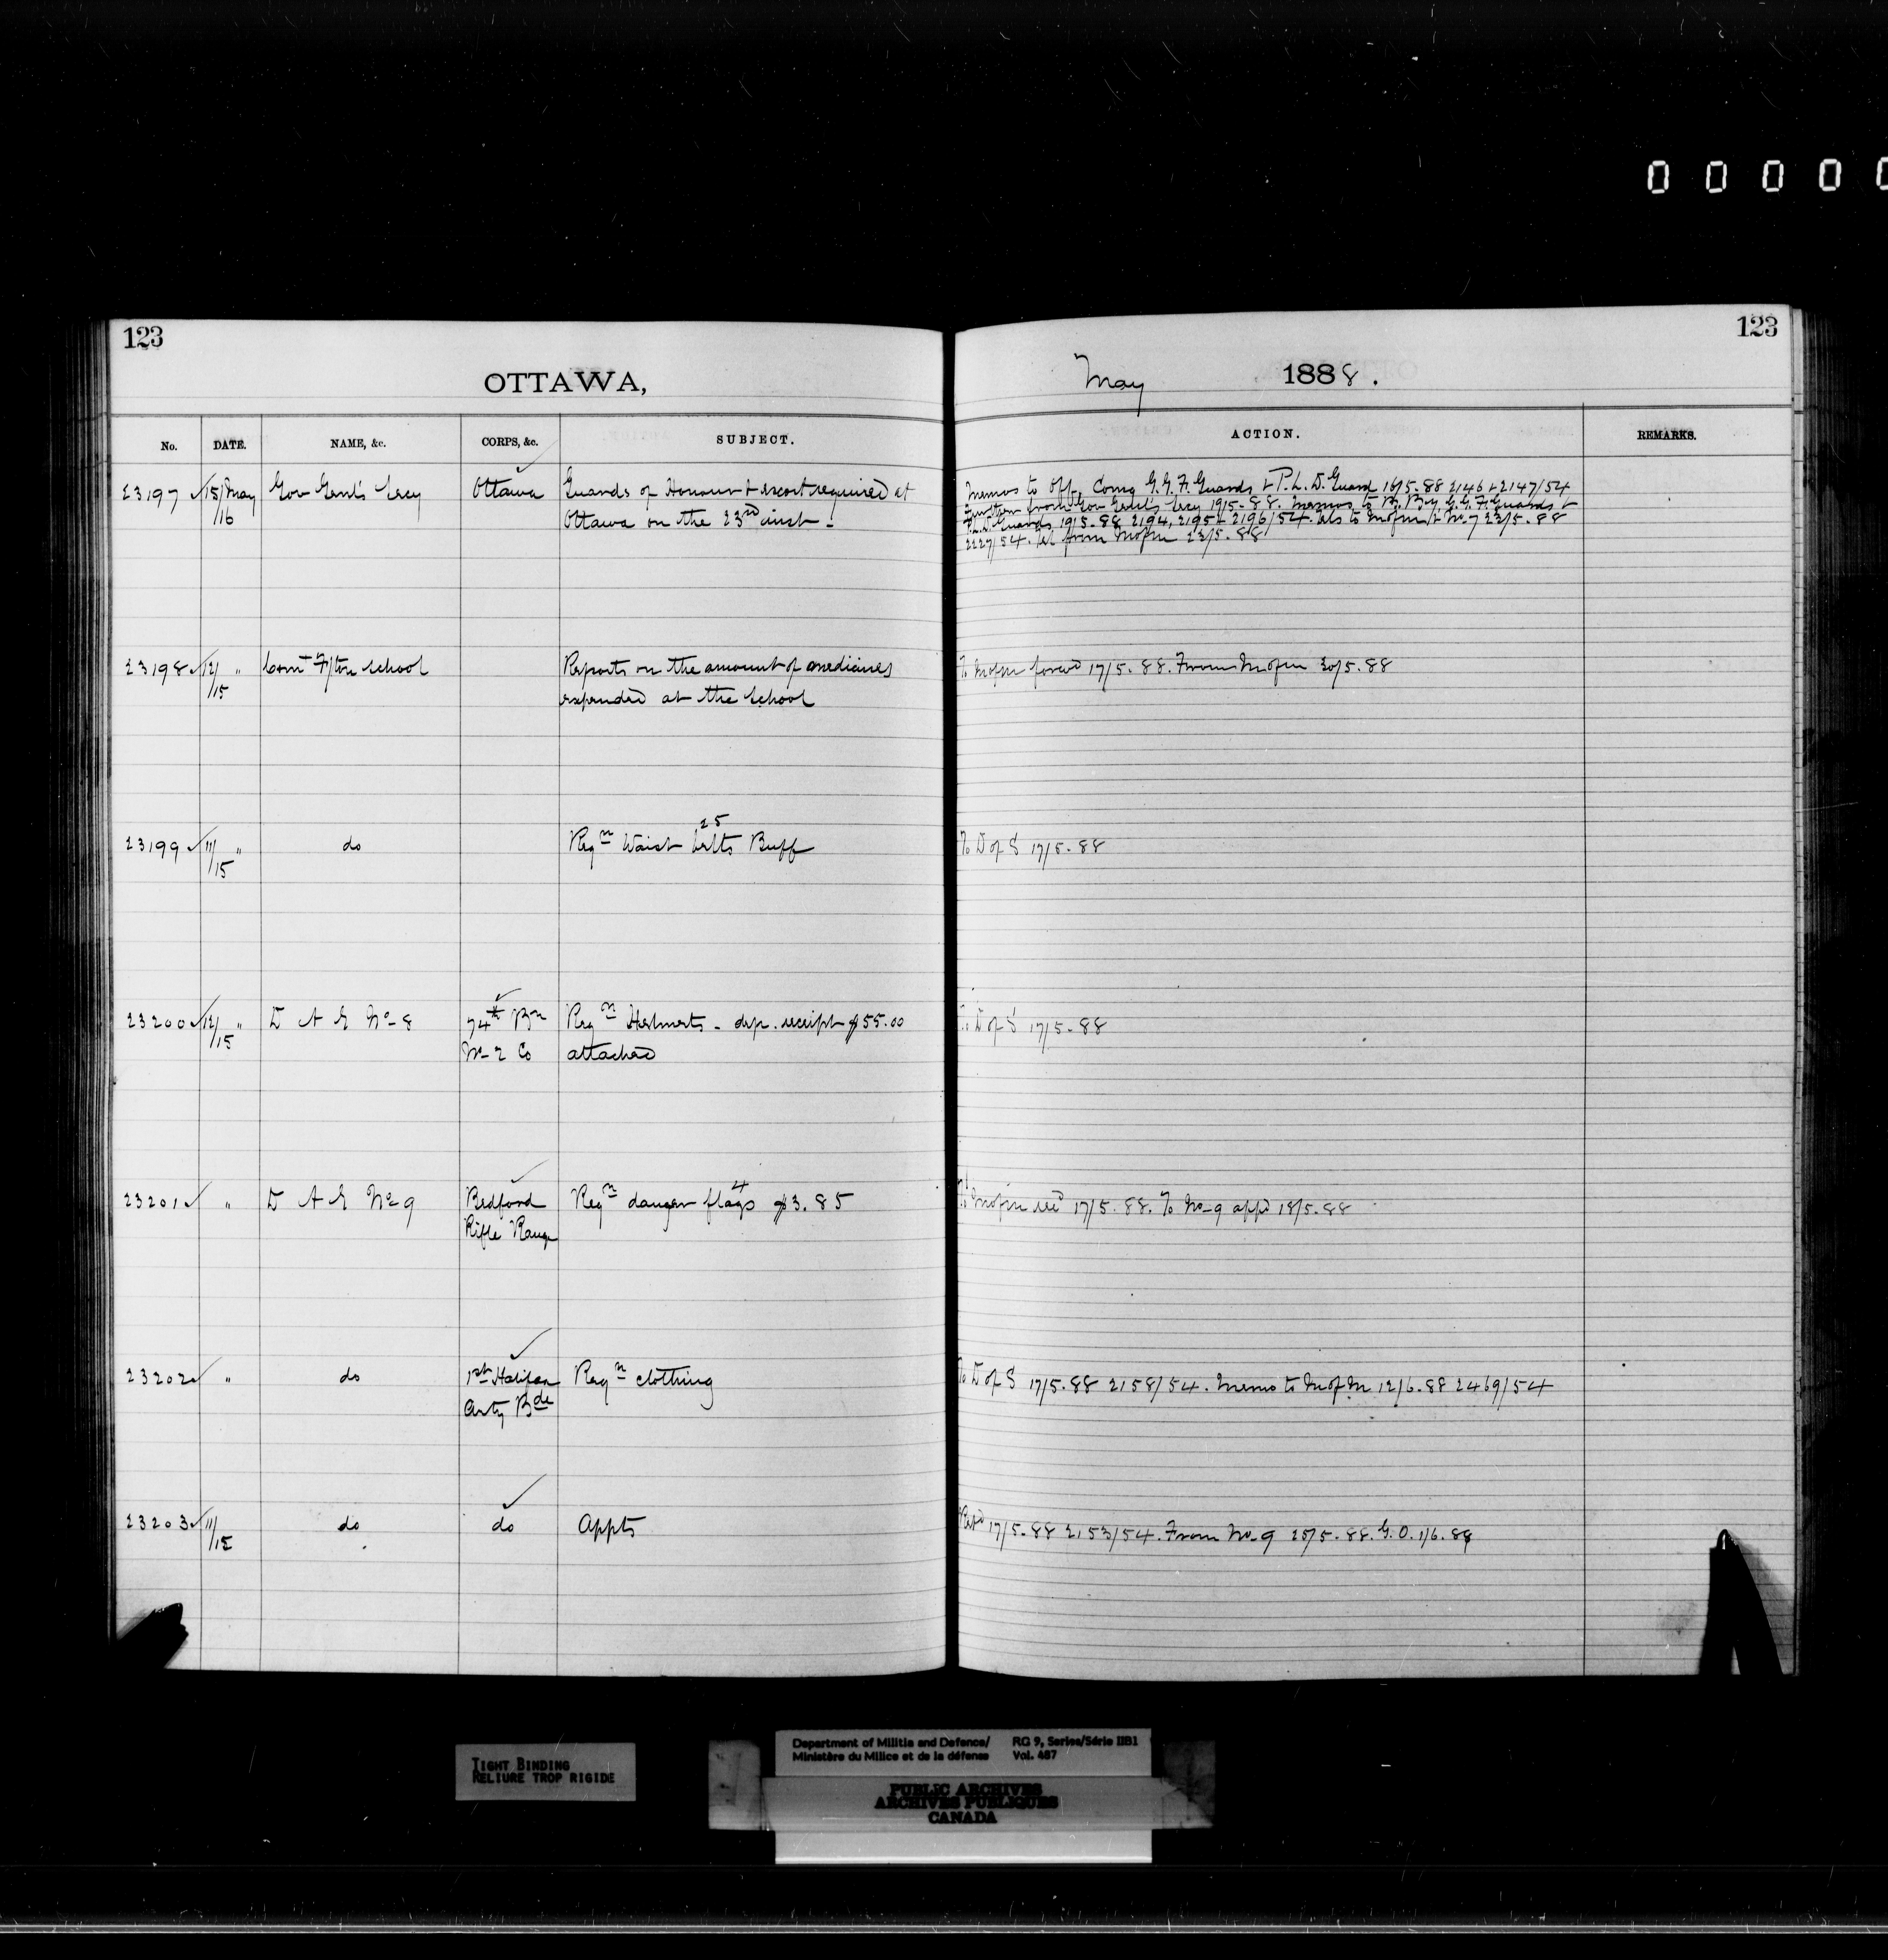 0 0 0 0 0
123
123
OTTAWA,
May 1888.
No. DATE. NAME, &c. CORPS, &c. SUBJECT. ACTION. REMARKS.
23197 15/May Gov Genl's Secy Ottawa Guards of Honour & escort required at
/16 Ottawa on the 23rd inst -
Memos to Off. Comg G.G.F. Guards & P.L.D. Guard 16/5.88 2146 & 2147/54
from Gov Genl's Secy 19/5.88. Memos to G.G.F. Guards &
P.L.D. Guards 19/5.88 2194, 2195 & 2196/54. to M of M & No. 7 23/5.88
2227/54. from M of M 23/5.88
23198 12/ " Comt School Reports on the amount of medicines
/15 expended at the School
To M of M forwd 17/5.88. From M of M 30/5.88
23199 11/ " do Reqn Waist belts Buff
25
/15
To D of S 17/5.88
23200 12/ " D A G No 8 74th Bn Reqn Helmets - dep. receipt $55.00
/15 No 2 Co attached
To D of S 17/5.88
23201 " D A G No 9 Bedford Reqn danger flags $3.85
4
Rifle Range
To M of M 17/5.88. To No 9 appd 18/5.88
23202 " do 1st Halifax Reqn clothing
Arty Bde
To D of S 17/5.88 2158/54. Memo to M of M 12/6.88 2469/54
23203 11/ do do Appts
/15
17/5.88 2153/54. From No. 9 25/5.88. G.O. 1/6.88
TIGHT BINDING
RELIURE TROP RIGIDE
Department of Militia and Defence/ RG 9, Series/Série IIB1
Ministère du Milice et de la défense Vol. 487
PUBLIC ARCHIVES
ARCHIVES PUBLIQUES
CANADA